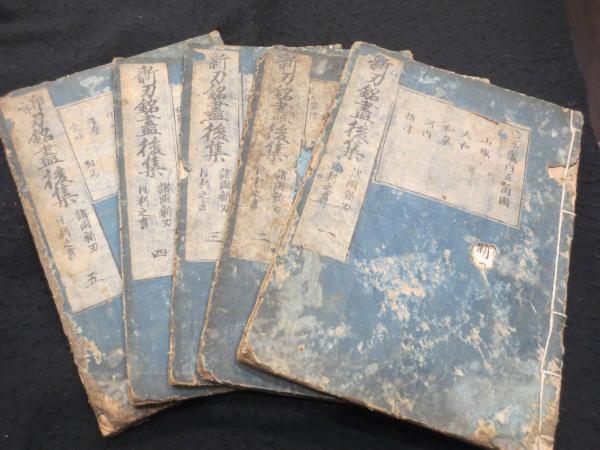 新刀銘盡後集
諸國新刀
目利之書
一
五畿内五箇國
山城
大和
和泉
河内
摂津
新刀銘盡後集
諸國新刀
目利之書
二
新刀銘盡後集
諸國新刀
目利之書
三
新刀銘盡後集
諸國新刀
目利之書
四
新刀銘盡後集
諸國新刀
目利之書
五